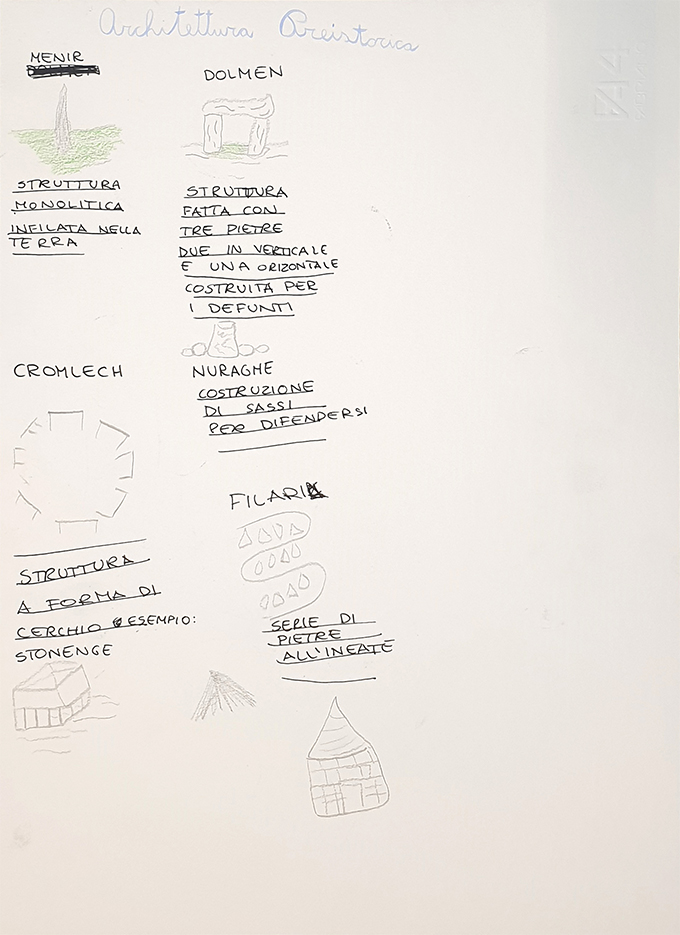 Architettura Preistorica
MENIR
DOLMEN
STRUTTURA
MONOLITICA
INFILATA NELLA
TERRA
DOLMEN
STRUTTURA
FATTA CON
TRE PIETRE
DUE IN VERTICALE
E UNA ORIZONTALE
COSTRUITA PER
I DEFUNTI
CROMLECH
STRUTTURA
A FORMA DI
CERCHIO ESEMPIO:
STONENGE
NURAGHE
COSTRUZIONE
DI SASSI
PER DIFENDERSI
FILARI
SERIE DI
PIETRE
ALL'INEATE